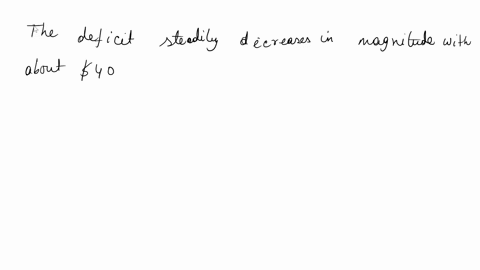 The deficit steadily decreases in magnitude with
about $40